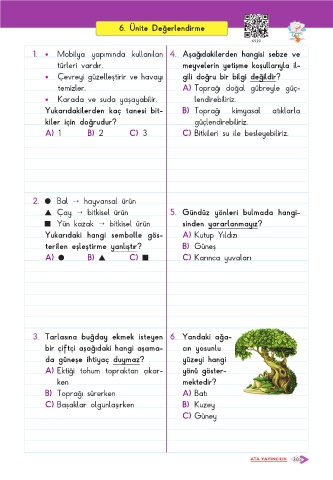 6. Ünite Değerlendirme
1. • Mobilya yapımında kullanılan
türleri vardır.
• Çevreyi güzelleştirir ve havayı
temizler.
• Karada ve suda yaşayabilir.
Yukarıdakilerden kaç tanesi bit-
kiler için doğrudur?
A) 1 B) 2 C) 3
2. ● Bal → hayvansal ürün
▲ Çay → bitkisel ürün
■ Yün kazak → bitkisel ürün
Yukarıdaki hangi sembolle gös-
terilen eşleştirme yanlıştır?
A) ● B) ▲ C) ■
3. Tarlasına buğday ekmek isteyen
bir çiftçi aşağıdaki hangi aşama-
da güneşe ihtiyaç duymaz?
A) Ektiği tohum topraktan çıkar-
ken
B) Toprağı sürerken
C) Başaklar olgunlaşırken
4. Aşağıdakilerden hangisi sebze ve
meyvelerin yetişme koşullarıyla il-
gili doğru bir bilgi değildir?
A) Toprağı doğal gübreyle güç-
lendirebiliriz.
B) Toprağı kimyasal atıklarla
güçlendirebiliriz.
C) Bitkileri su ile besleyebiliriz.
5. Gündüz yönleri bulmada hangi-
sinden yararlanmayız?
A) Kutup Yıldızı
B) Güneş
C) Karınca yuvaları
6. Yandaki ağa-
cın yosunlu
yüzeyi hangi
yönü göster-
mektedir?
A) Batı
B) Kuzey
C) Güney
ATA YAYINCILIK